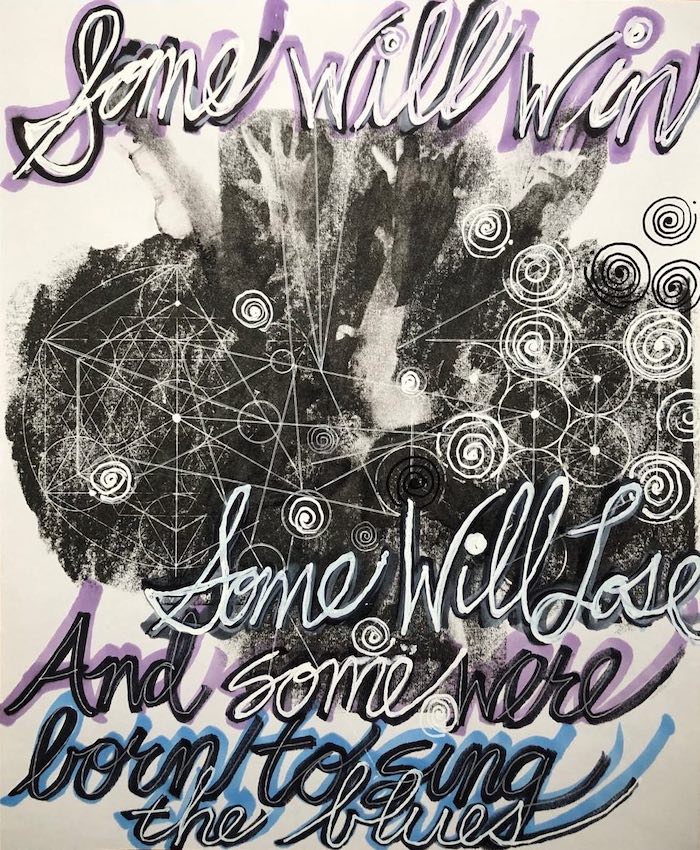 Some will win
Some Will Lose
And some were
born to sing
the blues